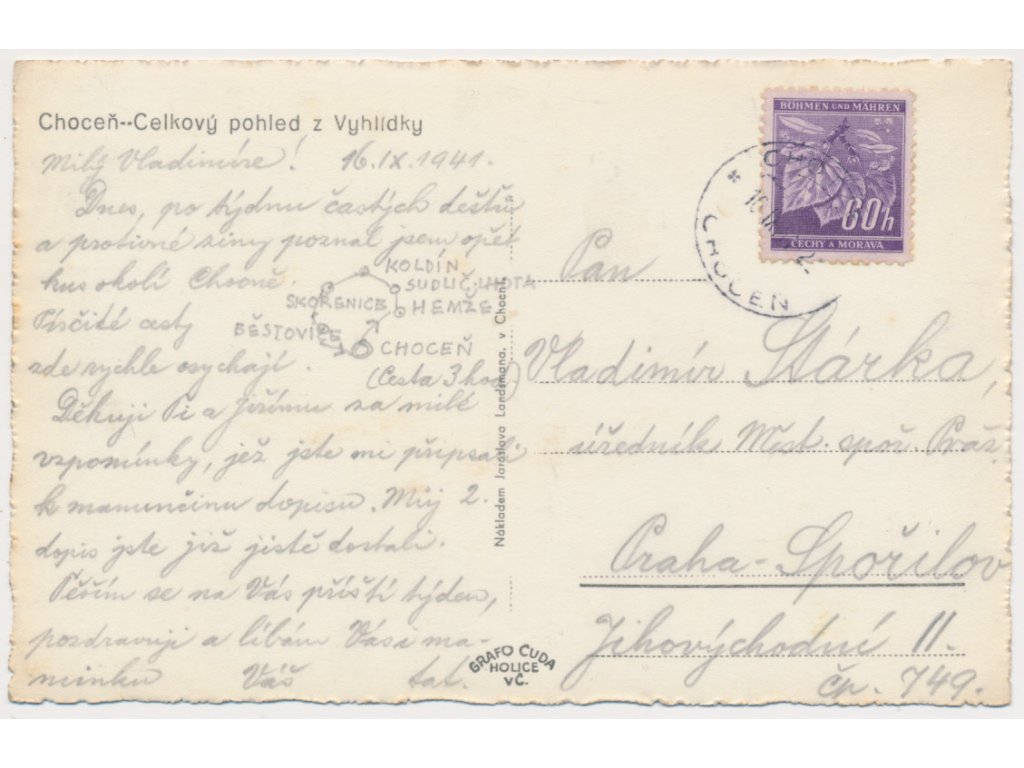 Choceň--Celkový pohled z Vyhlídky
Milý Vladimíre! 16.IX.1941.
Dnes, po týdnu častých dešťů
a protivné zimy poznal jsem opět
kus okolí Chocně.
KOLDÍN
SUDLIČ.LHOTA
SKOŘENICE
HEMŽE
Písčité cesty
BĚSTOVICE
CHOCEŇ
zde rychle osychají.
(Cesta 3 hod)
Děkuji Ti a Jiřímu za milé
vzpomínky, jež jste mi připsali
k mamunčinu dopisu. Můj 2.
dopis jste již jistě dostali.
Těším se na Vás příští týden,
pozdravuji a líbám Vás i ma-
minku Váš tat.
Nákladem Jaroslava Landsmana, v Chocni.
GRAFO ČUDA
HOLICE
VČ.
BÖHMEN UND MÄHREN
60h
ČECHY A MORAVA
CHOCEŇ
Pan
Vladimír Stárka,
úředník Měst. spoř. Praž.
Praha-Spořilov
Jihovýchodní 11.
čp. 749.